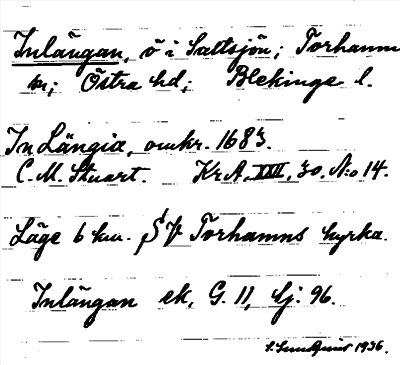 Inlängan, ö i Saltsjön; Torhamns
sn; Östra hd; Blekinge l.
In Längia, omkr. 1683.
C. M. Stuart. KrA, XXII, 30, N:o 14.
Läge 6 km. SV Torhamns kyrka.
Inlängan ek, G. 11, hj. 96.
S. Sundquist 1936.